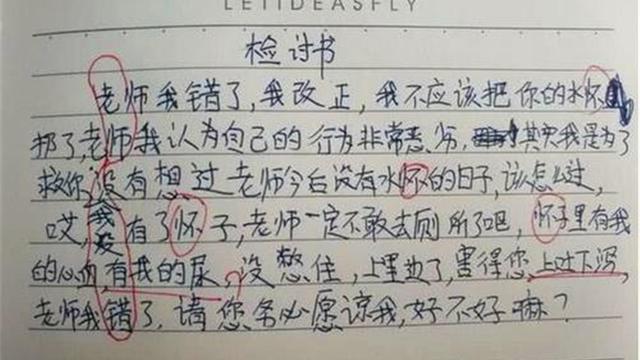 LETIDEASFLY
检讨书
老师我错了,我改正,我不应该把你的水怀
扔了,老师我认为自己的行为非常恶劣,其实我是为了
救你,没有想过老师今后没有水怀的日子,该怎么过,
哎,我发有了怀子,老师一定不敢去厕所了吧,怀子里有我
的心血,有我的尿,没憋住,上里边了,害得您上吐下泻,
老师我错了,请您务必愿谅我,好不好嘛?